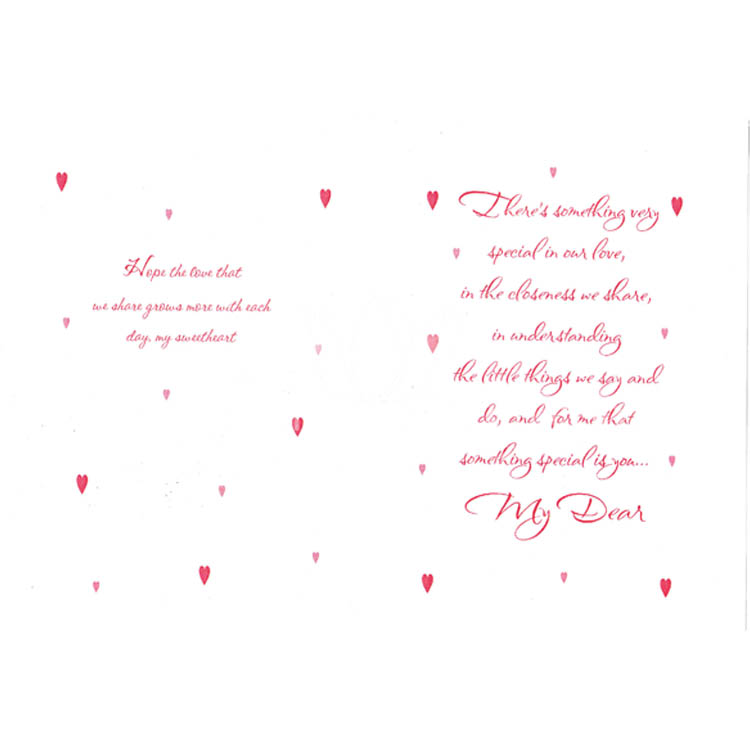 Hope the love that
we share grows more with each
day, my sweetheart
There's something very
special in our love,
in the closeness we share,
in understanding
the little things we say and
do, and for me that
something special is you...
My Dear